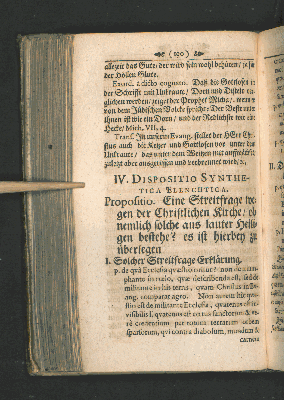 (190)
allezeit das Gute/ der wird sehr wohl behüten/
der Höllen Glut.
Exord. à dicto cognato. Daß die Gottlosen in
der Schrifft mit Unkraut/ Dorn und Disteln
glichen werden/ zeiget der Prophet Micha/ wenn er
von dem Jüdischen Volcke spricht: Der Beste unter
ihnen ist wie ein Dorn/ und der Redlichste wie eine
Hecke/ Mich. VII, 4.
Trans. In unserm Evang. stellet der HErr Chri-
stus auch die Ketzer und Gottlosen vor unter dem
Unkraute/ das unter dem Weitzen mit auffwächst/
zuletzt aber ausgezogen und verbrennet wird/
IV. DISPOSITIO SYNTHE-
TICA ELENCHTICA.
Propositio. Eine Streitfrage we-
gen der Christlichen Kirche/ ob
nemlich solche aus lauter Heili-
gen bestehe? es ist hierbey zu
überlegen
I. Solcher Streitfrage Erklärung.
p. de quâ Ecclesiâ quæstio sit? non de trium-
phante in cœlo, quæ describenda est, sed de
militante in his terris, quam Christus in Ev-
ang. comparat agro. Non autem hic quæ-
stio est de militante Ecclesia, quatenus est in-
visibilis s. quatenus est cœtus sanctorum & ve-
rè credentium per totum terrarum orbem
sparsorum, qui contra diabolum, mundum &
carnem